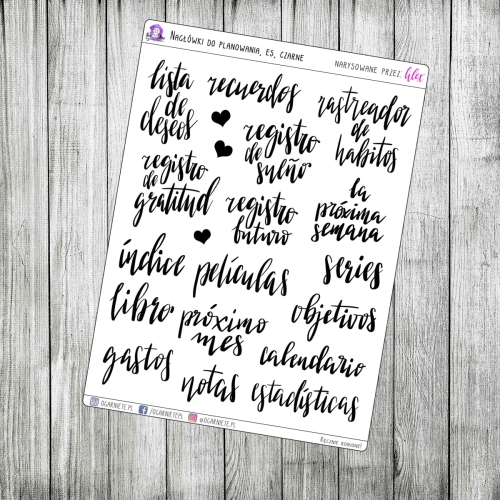 Nagłówki do planowania, ES, czarne
narysowane przez: Alex
lista
de
deseos
recuerdos
rastreador
de
habitos
registro
de
sueño
registro
de
gratitud
registro
futuro
la
próxima
semana
índice
películas
series
libro
próximo
mes
objetivos
gastos
calendario
notas
estadísticas
@ogarniete.pl
/ogarnietepl
@ogarniete.pl
Ręcznie robione!